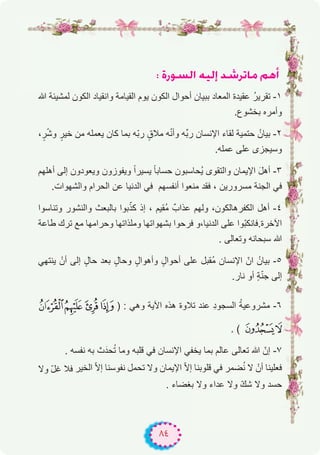 أهم ماترشد إليه السورة :
١- تقريرُ عقيدة المعاد ببيان أحوال الكون يوم القيامة وانقياد الكون لمشيئة الله
وأمره بخشوع.
٢- بيانُ حتمية لقاء الإنسان ربَّه وأنَّه ملاقٍ ربّه بما كان يعمله من خيرٍ وشَرٍ ،
وسيجزى على عمله.
٣- أهلُ الإيمان والتقوى يُحاسبون حساباً يسيراً ويفوزون ويعودون إلى أهلهم
في الجنة مسرورين ، فقد منعوا أنفسهم في الدنيا عن الحرام والشهوات.
٤- أهل الكفرهالكون، ولهم عذابٌ مُقيم ، إذ كذَّبوا بالبعث والنشور وتناسوا
الآخرة.فانكبّوا على الدنيا،و فرحوا بشهواتها وملذاتها وحرامها مع ترك طاعة
الله سبحانه وتعالى .
٥- بيانُ انّ الإنسان مُقبل على أحوالٍ وأهوالٍ وحالٍ بعد حالٍ إلى أنْ ينتهي
إلى جنَّةٍ أو نار.
٦- مشروعيةُ السجودِ عند تلاوة هذه الآية وهي : ( وَإِذَا قُرِئَ عَلَيْهِمُ الْقُرْءَانُ
لَا يَسْجُدُونَ ) .
٧- إنّ الله تعالى عالم بما يخفي الإنسان في قلبه وما تُحدث به نفسه .
فعلينا أنْ لا نُضمر في قلوبنا إلاَّ الإيمان ولا تحمل نفوسنا إلاَّ الخير فلا غلّ ولا
حسد ولا شكّ ولا عداء ولا بغضاء .
٨٤